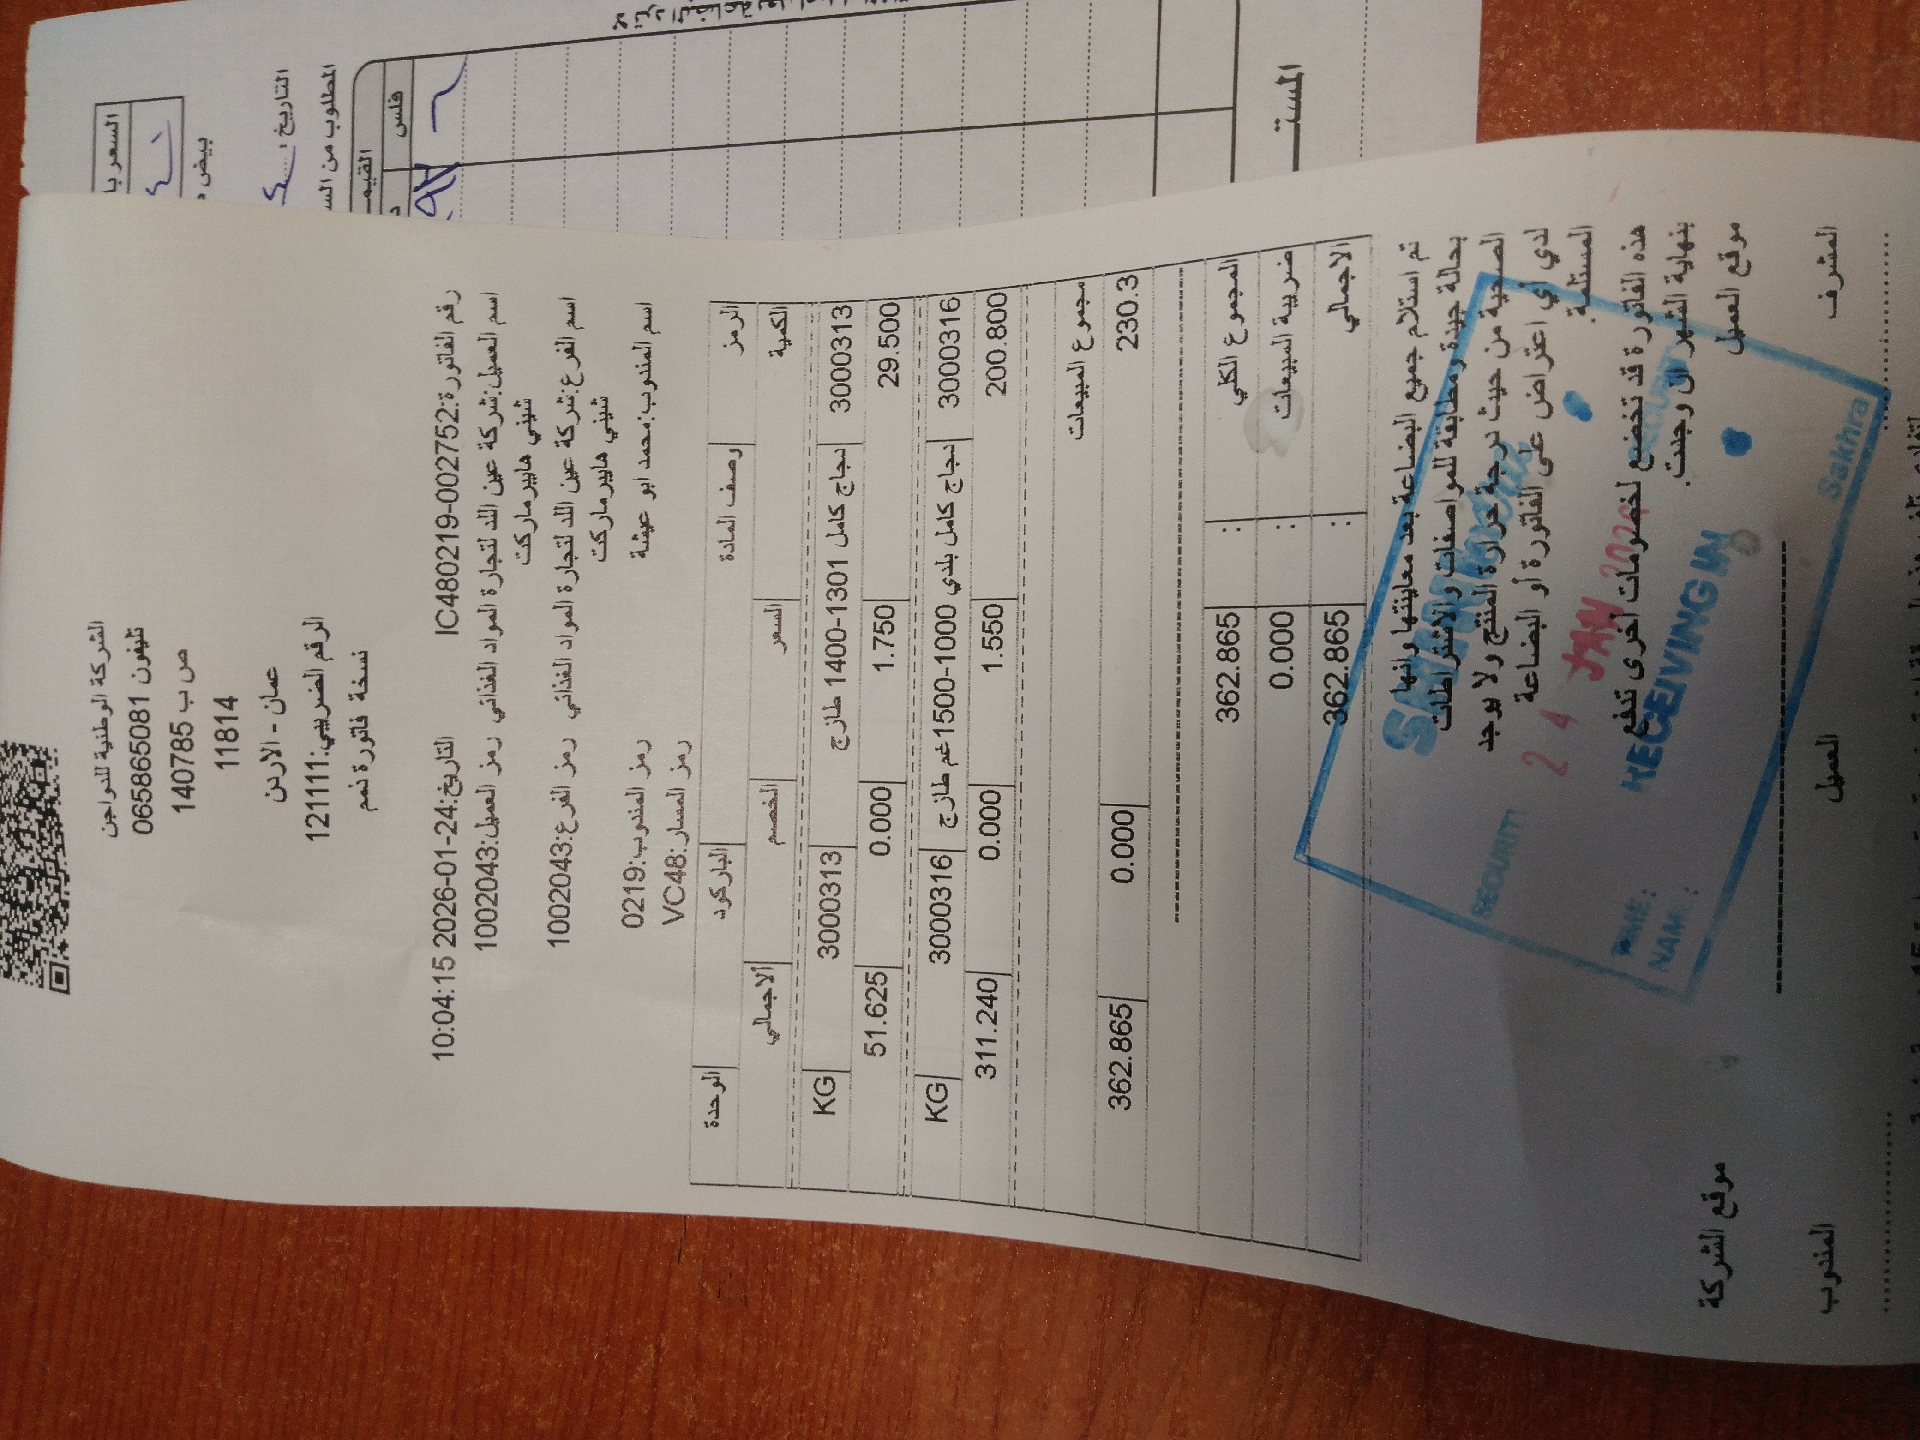 الشركة الوطنية للدواجن
تليفون 065865081
ص ب 140785
11814
عمان - الاردن
الرقم الضريبي:121111
نسخة فاتورة ذمم
رقم الفاتورة:IC480219-002752 التاريخ:24-01-2026 10:04:15
اسم العميل:شركة عين اللد لتجارة المواد الغذائي رمز العميل:1002043
شيني هايبر ماركت
اسم الفرع:شركة عين اللد لتجارة المواد الغذائي رمز الفرع:1002043
شيني هايبر ماركت
اسم المندوب:محمد ابو عيشة رمز المندوب:0219
رمز المسار:VC48
الرمز وصف المادة الباركود الوحدة
الكمية السعر الخصم الاجمالي
3000313 دجاج كامل 1301-1400 طازج 3000313 KG
29.500 1.750 0.000 51.625
3000316 دجاج كامل بلدي 1000-1500غم طازج 3000316 KG
200.800 1.550 0.000 311.240
مجموع المبيعات
230.3 0.000 362.865
المجموع الكلي : 362.865
ضريبة المبيعات : 0.000
الاجمالي : 362.865
تم استلام جميع البضاعة بعد معاينتها وانها
بحالة جيدة ومطابقة للمواصفات والاشتراطات
الصحية من حيث درجة حرارة المنتج ولا يوجد
لدي أي اعتراض على الفاتورة أو البضاعة
المستلمة
هذه الفاتورة قد تخضع لخصومات أخرى تدفع
بنهاية الشهر ان وجدت.
موقع العميل موقع الشركة
المشرف العميل المندوب
SECURITY
24 JAN 2026
RECEIVING IN
TIME:
NAME:
Sakhra
السعر با
بيض
التاريخ
المطلوب من الس
القيمـ
فلس
المستـ